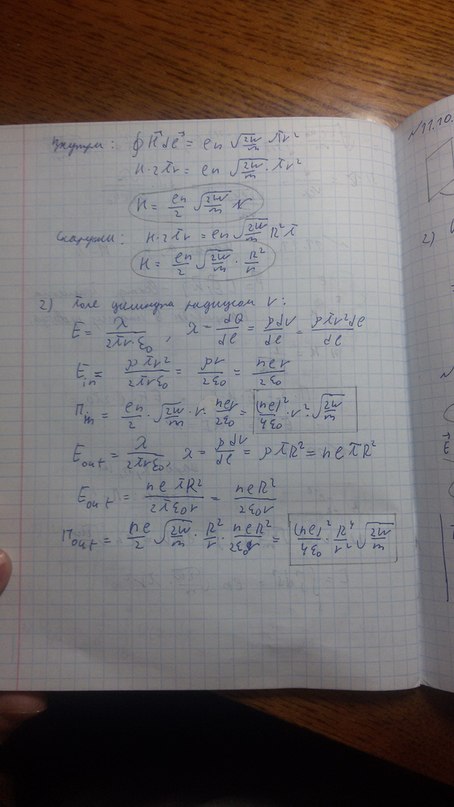 Внутри: ∮H⃗dℓ⃗ = en √(2W/m) πr²
H·2πr = en √(2W/m) · πr²
H = en/2 √(2W/m) r
Снаружи: H·2πr = en √(2W/m) R²π
H = en/2 √(2W/m) · R²/r
2) Поле цилиндра радиусом r:
E = λ/(2πrε₀), λ = dQ/dℓ = ρdV/dℓ = ρπr²dℓ/dℓ
E_in = ρπr²/(2πrε₀) = ρr/(2ε₀) = ner/(2ε₀)
П_in = en/2 · √(2W/m) · r · ner/(2ε₀) = (ne)²/(4ε₀) · r² · √(2W/m)
E_out = λ/(2πrε₀), λ = ρdV/dℓ = ρπR² = neπR²
E_out = neπR²/(2πε₀r) = neR²/(2ε₀r)
П_out = ne/2 · √(2W/m) · R²/r · neR²/(2ε₀r) = (ne)²/(4ε₀) · R⁴/r² √(2W/m)
№11.10.
2)